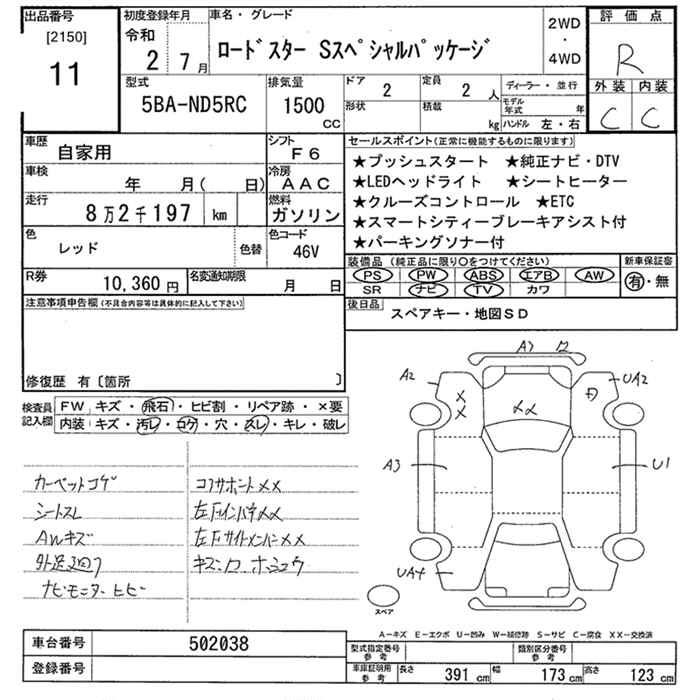 出品番号
[2150]
11
初度登録年月
令和
2 7月
車名・グレード
ロードスター Sスペシャルパッケージ
2WD
・
4WD
評価点
R
外装 内装
C C
型式
5BA-ND5RC
排気量
1500
CC
ドア 2
定員 2 人
形状
積載 kg
ディーラー・並行
モデル年式 年
ハンドル 左・右
車歴
自家用
シフト
F6
車検
年 月( 日)
冷房
AAC
走行
8万2千197 km
燃料
ガソリン
色
レッド
色替
色コード
46V
R券
10,360円
名変通知期限
月 日
セールスポイント(正常に機能するものに限ります)
★プッシュスタート ★純正ナビ・DTV
★LEDヘッドライト ★シートヒーター
★クルーズコントロール ★ETC
★スマートシティーブレーキアシスト付
★パーキングソナー付
装備品 (純正品に限り○をつけてください)
PS PW ABS エアB AW
SR ナビ TV カワ
新車保証書
有・無
後日品
スペアキー・地図SD
注意事項申告欄(不具合内容等は具体的に記入して下さい)
修復歴 有〔箇所 〕
検査員
記入欄
FW キズ・飛石・ヒビ割・リペア跡・×要
内装 キズ・汚レ・コゲ・穴・スレ・キレ・破レ
カーペットコゲ
シートスレ
AWキズ
外足廻り
ナビモニターヒビ
コアサポートXX
左FインパネXX
左FサイドメンバーXX
キズ・ワ・ホシュウ
A3 ワ
A2
UA2
XX
A3
U1
UA4
スペア
A-キズ E-エクボ U-凹み W-補修跡 S-サビ C-腐食 XX-交換済
車台番号 502038
登録番号
型式指定番号
参考
類別区分番号
参考
車庫証明用
参考
長さ 391 cm 幅 173 cm 高さ 123 cm